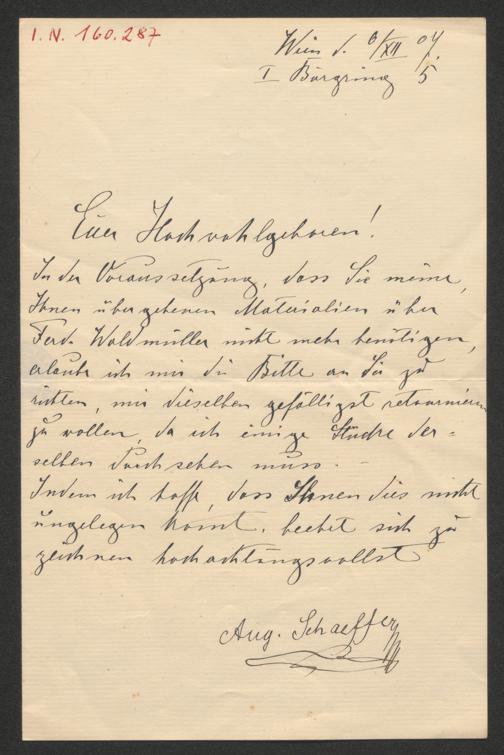 I. N. 160.287
Wien d. 6/XII 04.
I Burgring 5
Euer Hochwohlgeboren!
In der Voraussetzung, dass Sie meine,
Ihnen übergebenen Materialien über
Ferd. Waldmüller nicht mehr benötigen,
erlaube ich mir die Bitte an Sie zu
richten, mir dieselben gefälligst retournieren
zu wollen, da ich einige Stücke der=
selben durchsehen muss. –
Indem ich hoffe, dass Ihnen dies nicht
ungelegen kommt, beehrt sich zu
zeichnen hochachtungsvollst
Aug. Schaeffer